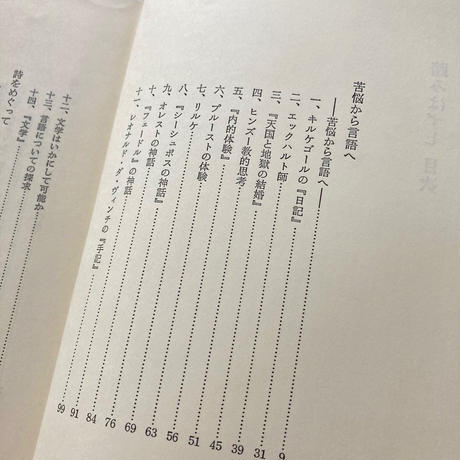 苦悩から言語へ
――苦悩から言語へ――
一、キルケゴールの『日記』 9
二、エックハルト師 31
三、『天国と地獄の結婚』 39
四、ヒンズー教的思考 45
五、『内的体験』 51
六、プルーストの体験 56
七、リルケ 63
八、『シーシュポスの神話』 69
九、オレストの神話 76
十、『フェードル』の神話 84
十一、レオナルド・ダ・ヴィンチの『手記』 91
十二、文学はいかにして可能か 99
十三、言語についての探求
十四、『文学』
詩をめぐって